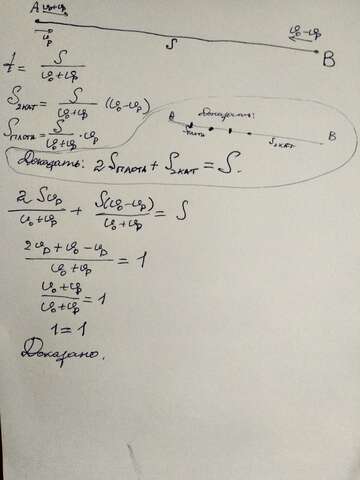 A υ₀+υₚ
υₚ
υ₀-υₚ
S
B
t = S/(υ₀+υₚ)
S₂кат = S/(υ₀+υₚ) (υ₀-υₚ)
Доказать:
A
B
S₂кат
Sплота = S/(υ₀+υₚ) · υₚ
Доказать: 2Sплота + S₂кат = S.
2Sυₚ/(υ₀+υₚ) + S(υ₀-υₚ)/(υ₀+υₚ) = S
(2υₚ+υ₀-υₚ)/(υ₀+υₚ) = 1
(υ₀+υₚ)/(υ₀+υₚ) = 1
1=1
Доказано.